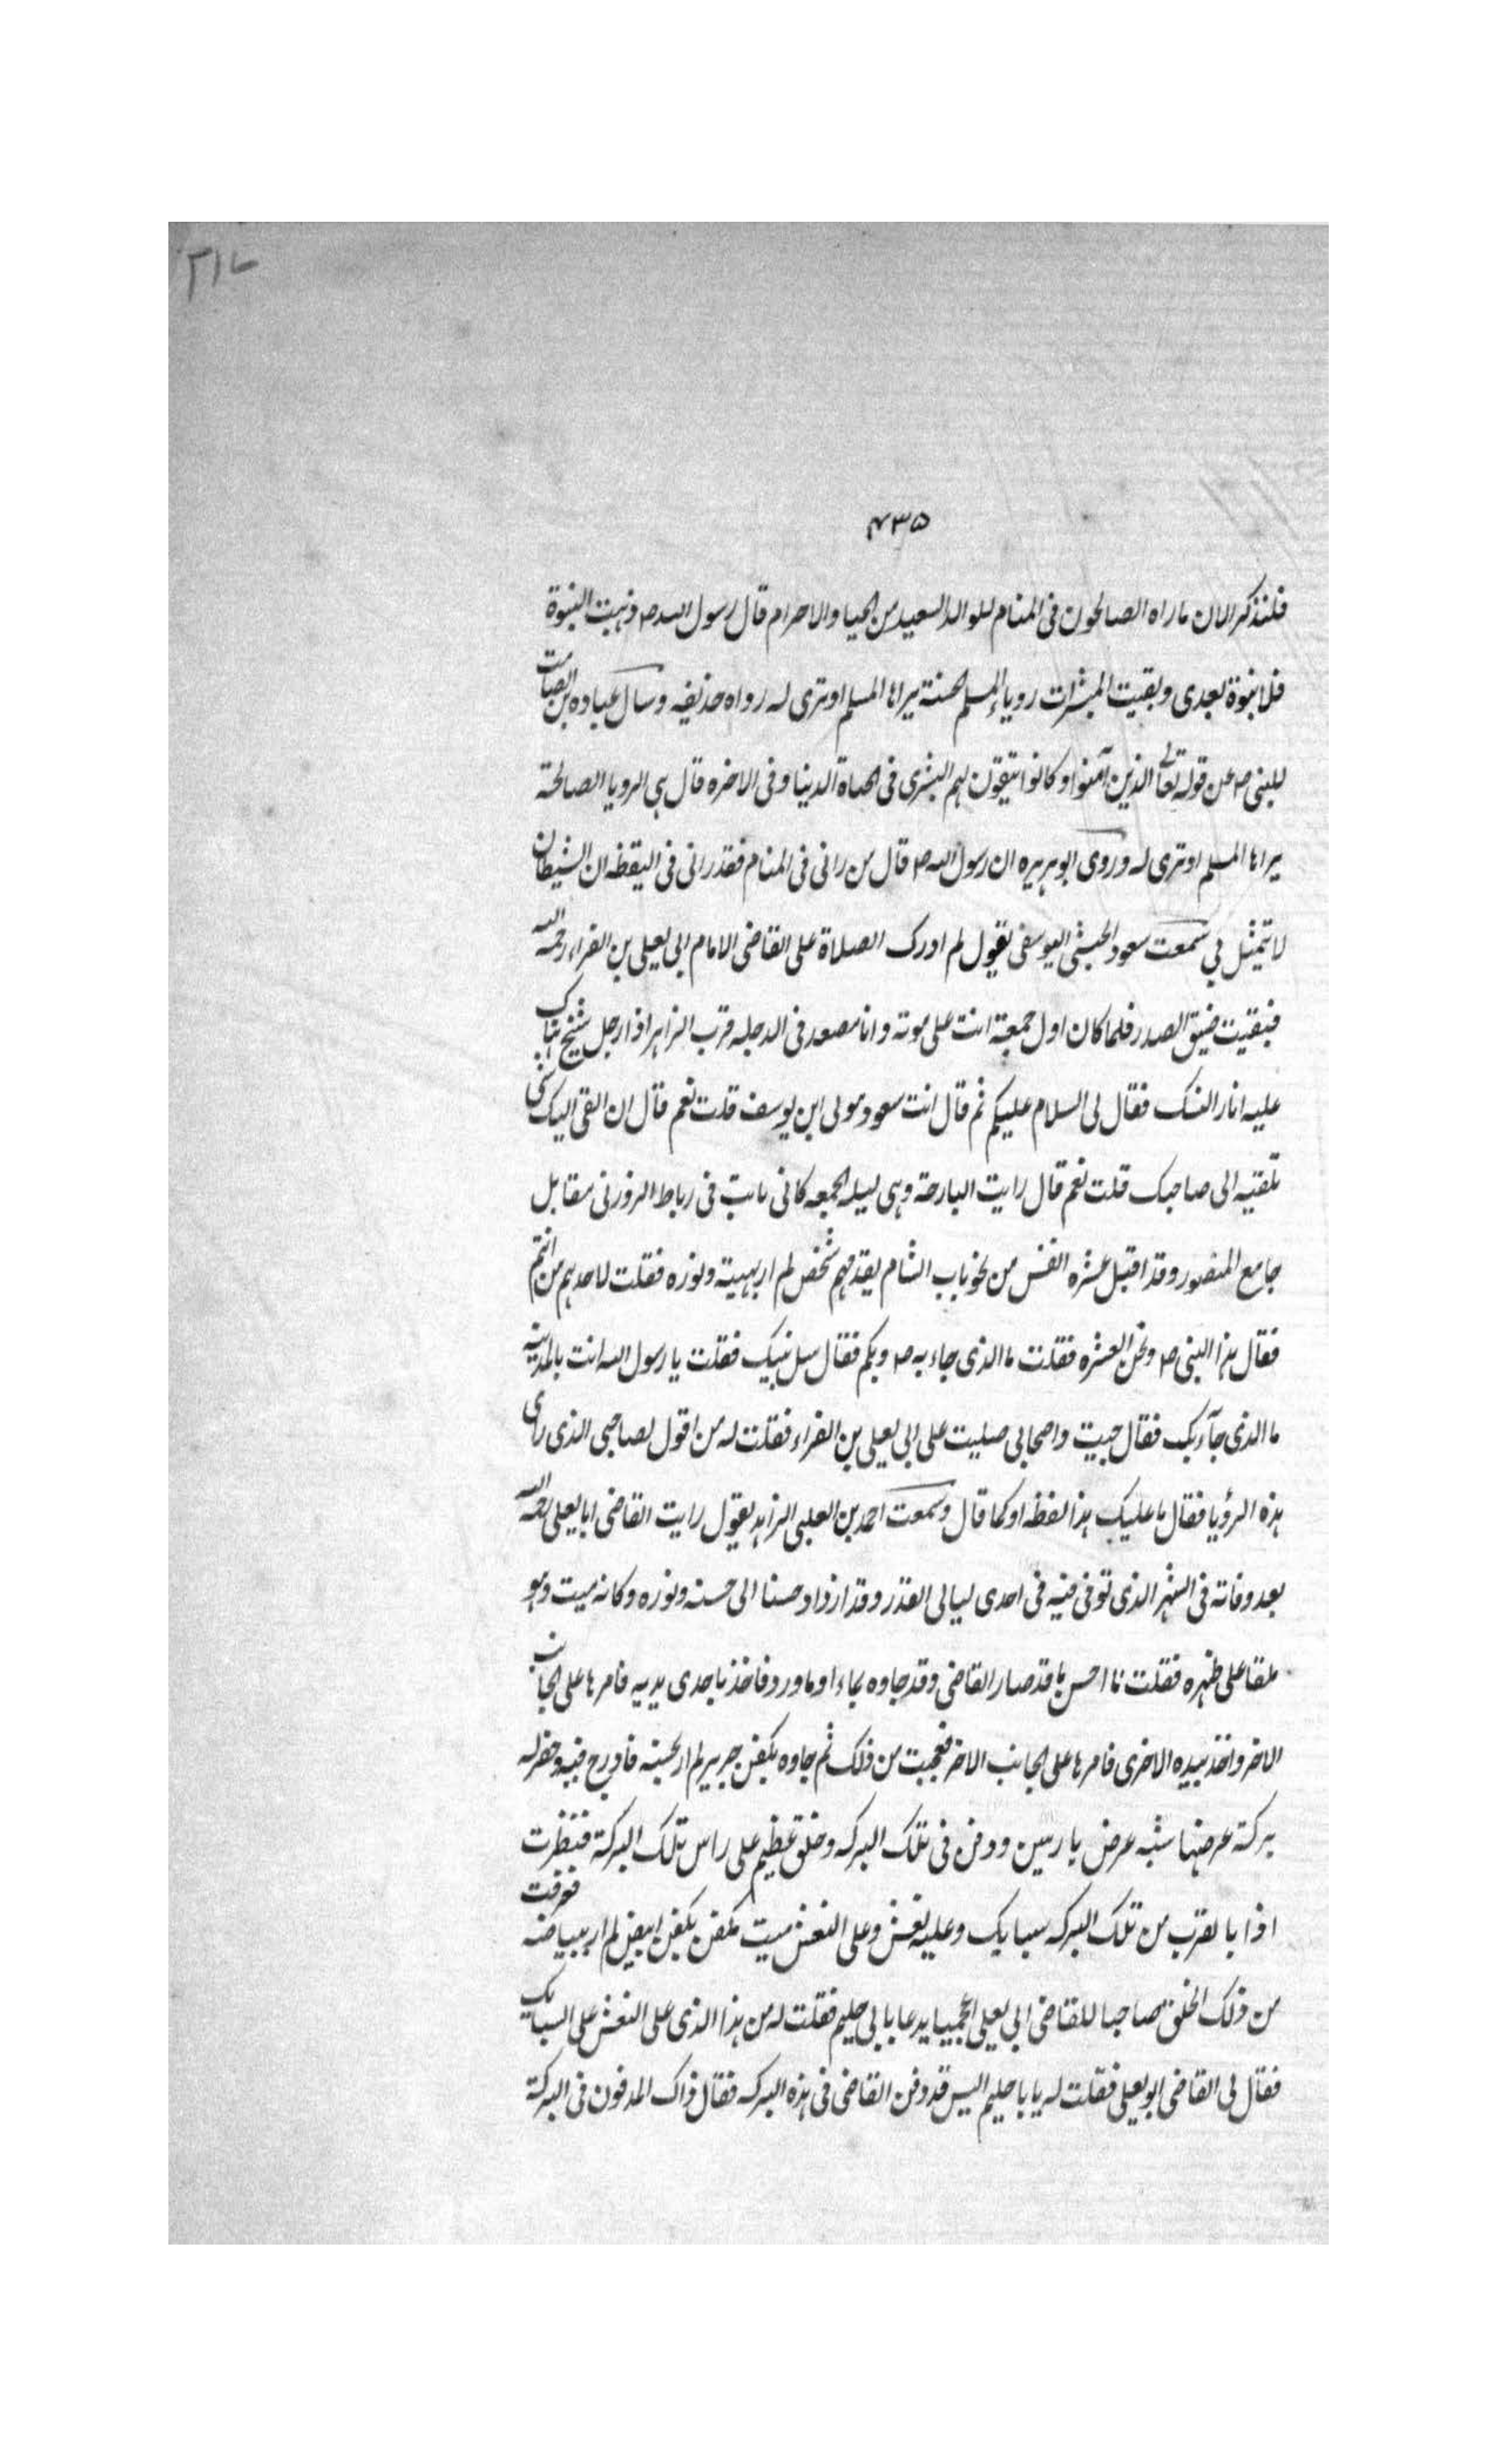 ٢١٧
۴۳۵
فلنذكر الان ماراه الصالحون فى المنام للوالد السعيد من الحيا والاحرام قال رسول الله ص ذهبت النبوة
فلا نبوة بعدى وبقيت المبشرات روياء المسلم الحسنة يراها المسلم اوترى له رواه حذيفه وسال عباده بن الصامت
للنبى ص عن قوله تعالى الذين آمنوا وكانوا يتقون لهم البشرى فى الحياة الدنيا وفى الاخره قال هى الرويا الصالحة
يراها المسلم اوترى له وروى ابوهريره ان رسول الله ص قال من رانى فى المنام فقدرانى فى اليقظه ان الشيطان
لا يتمثل بي سمعت سعود الحبشى اليوسفى يقول لم ادرك الصلاة على القاضى الامام ابى يعلى بن الفراء رحمه الله
فبقيت ضيق الصدر فلما كان اول جمعة اتت على موته وانا مصعد فى الدجله قرب الزاهر اذا رجل شيخ هناك
عليه اثار النسك فقال لى السلام عليكم ثم قال انت سعود مولى ابن يوسف قلت نعم قال ان القى اليك شى
تلقيه الى صاحبك قلت نعم قال رايت البارحة وهى ليله الجمعه كانى نايت فى رباط الزوزنى مقابل
جامع المنصور وقد اقبل عشره انفس من نحو باب الشام يقدمهم شخص لم ار بهيته ونوره فقلت لاحدهم من انتم
فقال هذا النبى ص ونحن العشره فقلت ما الذى جاء به ص وبكم فقال سل نبيك فقلت يا رسول الله انت بالمدينه
ما الذى جآء بك فقال جيت واصحابى صليت على ابى يعلى بن الفراء فقلت له من اقول لصاحبى الذى راى
هذه الرؤيا فقال ما عليك هذا لفظه اوكما قال وسمعت احمد بن العلبى الزاهد يقول رايت القاضى ابا يعلى رحمه الله
بعد وفاته فى الشهر الذى توفى فيه فى احدى ليالى القدر وقد ازداد حسنا الى حسنه ونوره وكانه ميت وهو
ملقا على ظهره فقلت نا احسن ما قد صار القاضى وقد جاوه بماء او ماورد فاخذ باحدى يديه فامرها على الجانب
الاخر واخذ بيده الاخرى فامرها على الجانب الاخر فعجبت من ذلك ثم جاوه بكفن حرير لم ار لحسنه فادرج فيه وحفر له
بركة عرضها شبه عرض يا رسين ودفن فى تلك البركه وخلق عظيم على راس تلك البركة فنظرت
اذا بالقرب من تلك البركه سبايك وعليه نعش وعلى النعش ميت مكفن بكفن ابيض لم ار ببياضه فعرفت
من ذلك الخلق صاحبا للقاضى ابى يعلى اعجميا يدعا بابى حليم فقلت له من هذا الذى على النعش على السبايك
فقال لى القاضى ابويعلى فقلت له يا با حليم اليس قد دفن القاضى فى هذه البركه فقال ذاك المدفون فى البركة